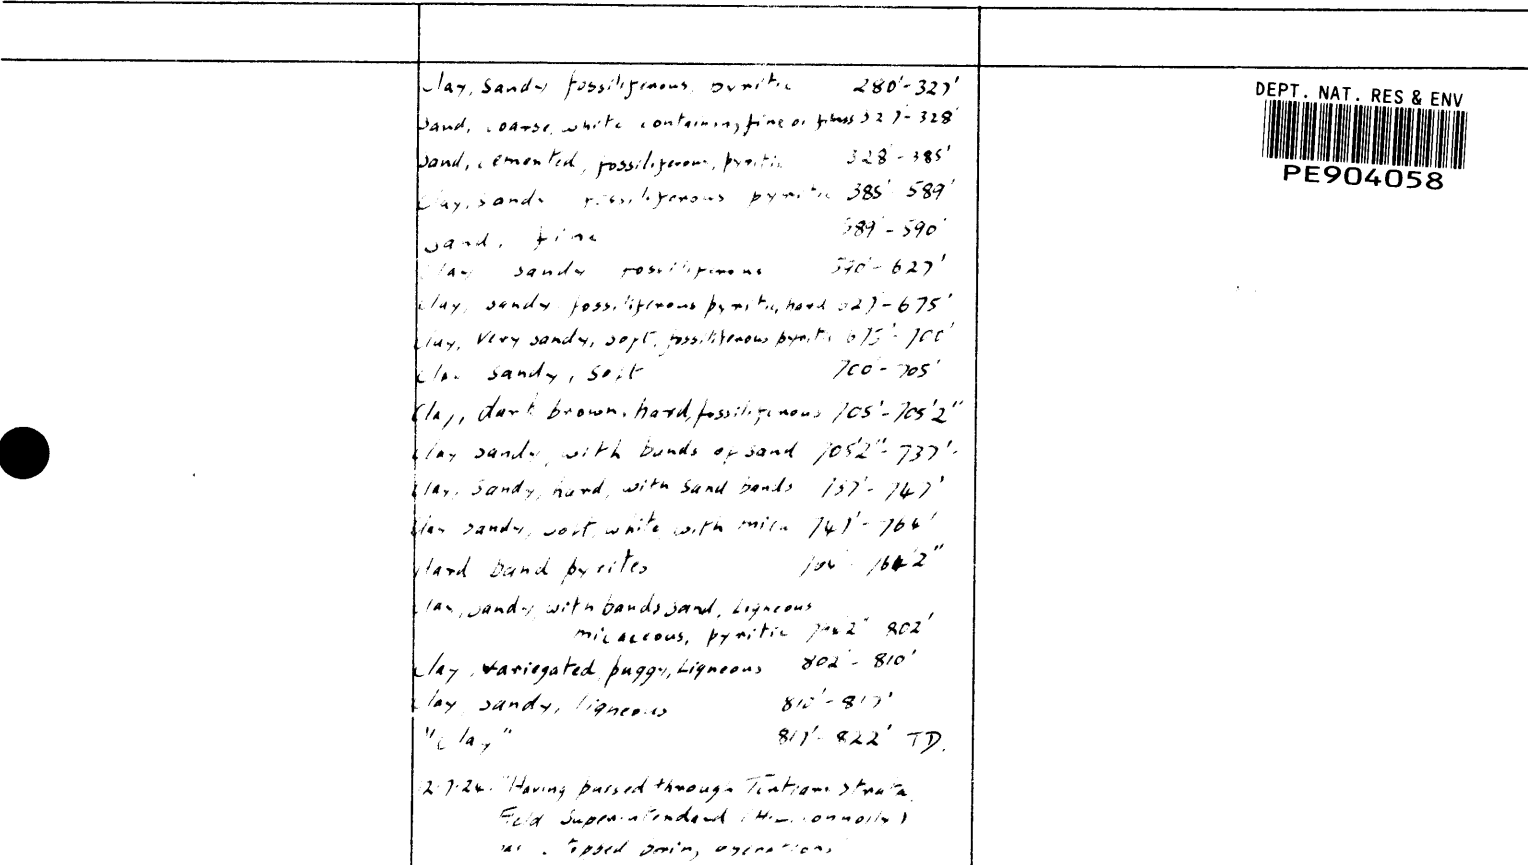 Clay, Sandy fossiliferous, pyritic 280'-327'
Sand, coarse, white containing fine 327-328'
Sand, cemented, fossiliferous, pyritic 328'-385'
Clay, sandy fossiliferous pyritic 385'-589'
Sand, fine 589'-590'
Clay sandy fossiliferous 590'-627'
Clay, sandy fossiliferous pyritic, hard 627-675'
Clay, Very sandy, soft, fossiliferous pyritic 675'-700'
Clay sandy, soft 700'-705'
Clay, dark brown, hard, fossiliferous 705'-705'2"
Clay sandy, with bands of sand 705'2"-737'
Clay, Sandy, hard, with Sand bands 737'-747'
Clay sandy, soft, white, with mica 747'-764'
Hard band pyrites 764'-764'2"
Clay, sandy, with bands sand, Ligneous
micaceous, pyritic 764'2" 802'
Clay, variegated, puggy, Ligneous 802'-810'
Clay sandy, ligneous 810'-817'
"Clay" 817'-822' TD.
2.7.24. "Having passed through Tertiary strata
Field Superintendent
boring operations
DEPT. NAT. RES & ENV
PE904058